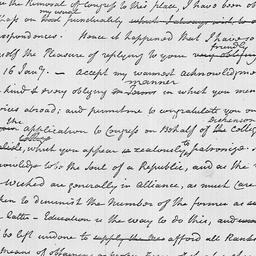 the Removal of Congress to this place, I have been ob
on that punctuality which I always wish to
spondences. Hence it happened that I have so
myself the Pleasure of replying to your very obliging friendly
16 Jany. — Accept my warmest Acknowledgme
manner
kind & every obliging in which you men
vices abroad; and permit me to congratulate you on
the Dickenson
application to Congress on Behalf of the College
College
which you appear so zealously to patronize.
nowledge is the Soul of a Republic, and as the
Wicked are generally in Alliance, as much care
taken to diminish the Number of the former as
latter — Education is the way to do this, and
be left undone to supply the afford all Ranks
means of obtaining